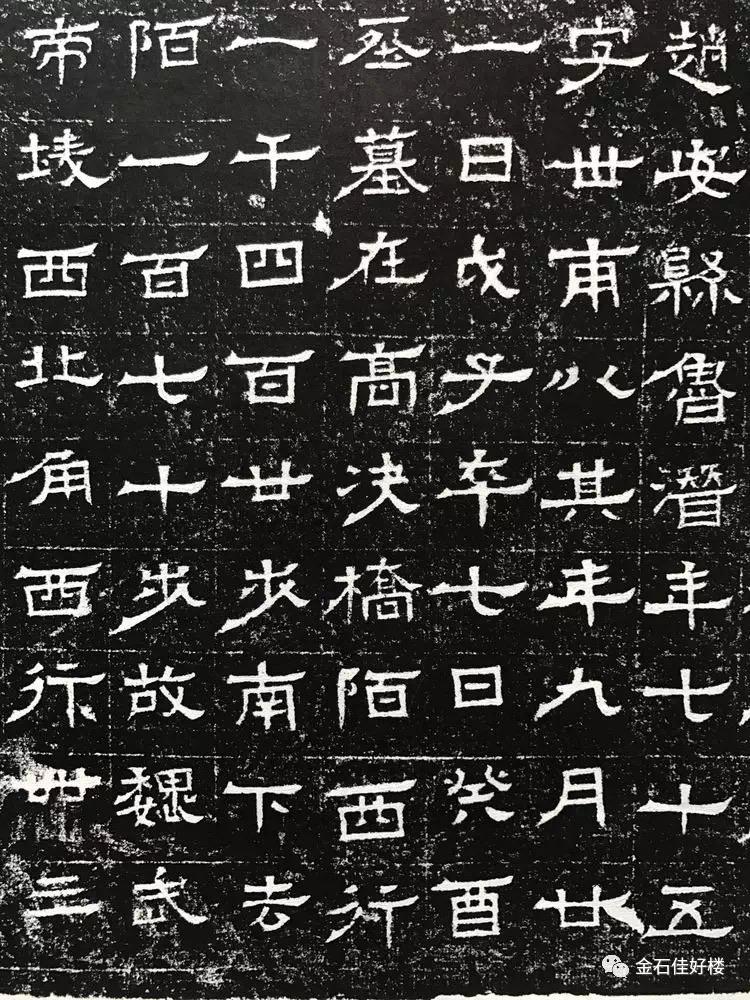 趙安縣魯潛年七十五
字世甫以其年九月廿
一日戊子卒七日癸酉
葬墓在高決橋陌西行
一千四百廿步南下去
陌一百七十步故魏武
帝陵西北角西行卌三
金石佳好楼